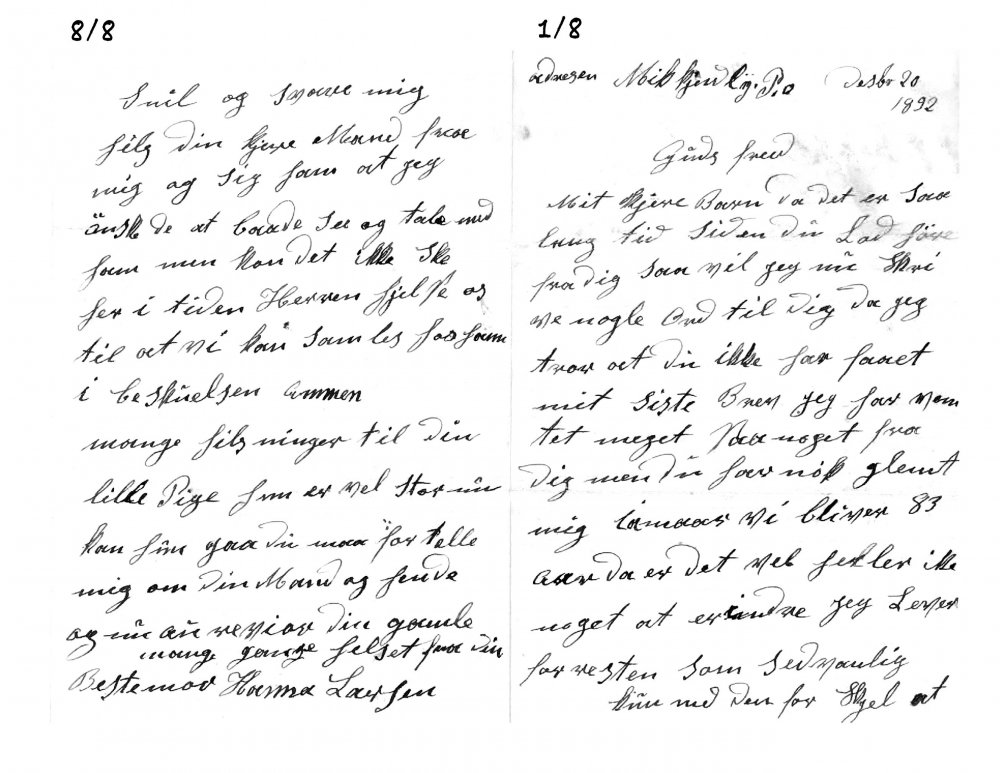 8/8
Snil og svare mig
hils din kjere Mand fraa
mig og sig ham at jeg
önskede at baade see og tale med
ham men kan det ikke ske
her i tiden Herren hjelpe os
til at vi kan samles hos ham
i beskuelsen Ammen
mange hilsninger til din
lille Pige hun er vel stor nü
kan hün gaa dü maa fortelle
mig om din Mand og hende
og nü revior din gamle
mange gange helset fra din
Bestemor Hanna Larsen
1/8
adresen Desbr 20
1892
Güds fred
Mit kjere Barn da det er saa
leng tid siden dü Lod høre
fra dig saa vil jeg nü Skri
ve nogle Ord til dig da jeg
tror at dü ikke har faaet
mit siste Brev jeg har ven
tet meget paa noget fra
dig men dü har nok glemt
mig ianuar vi bliver 83
aar da er det vel heller ikke
noget at erindre jeg Lever
forresten som sedvanlig
kün med den forskjel at